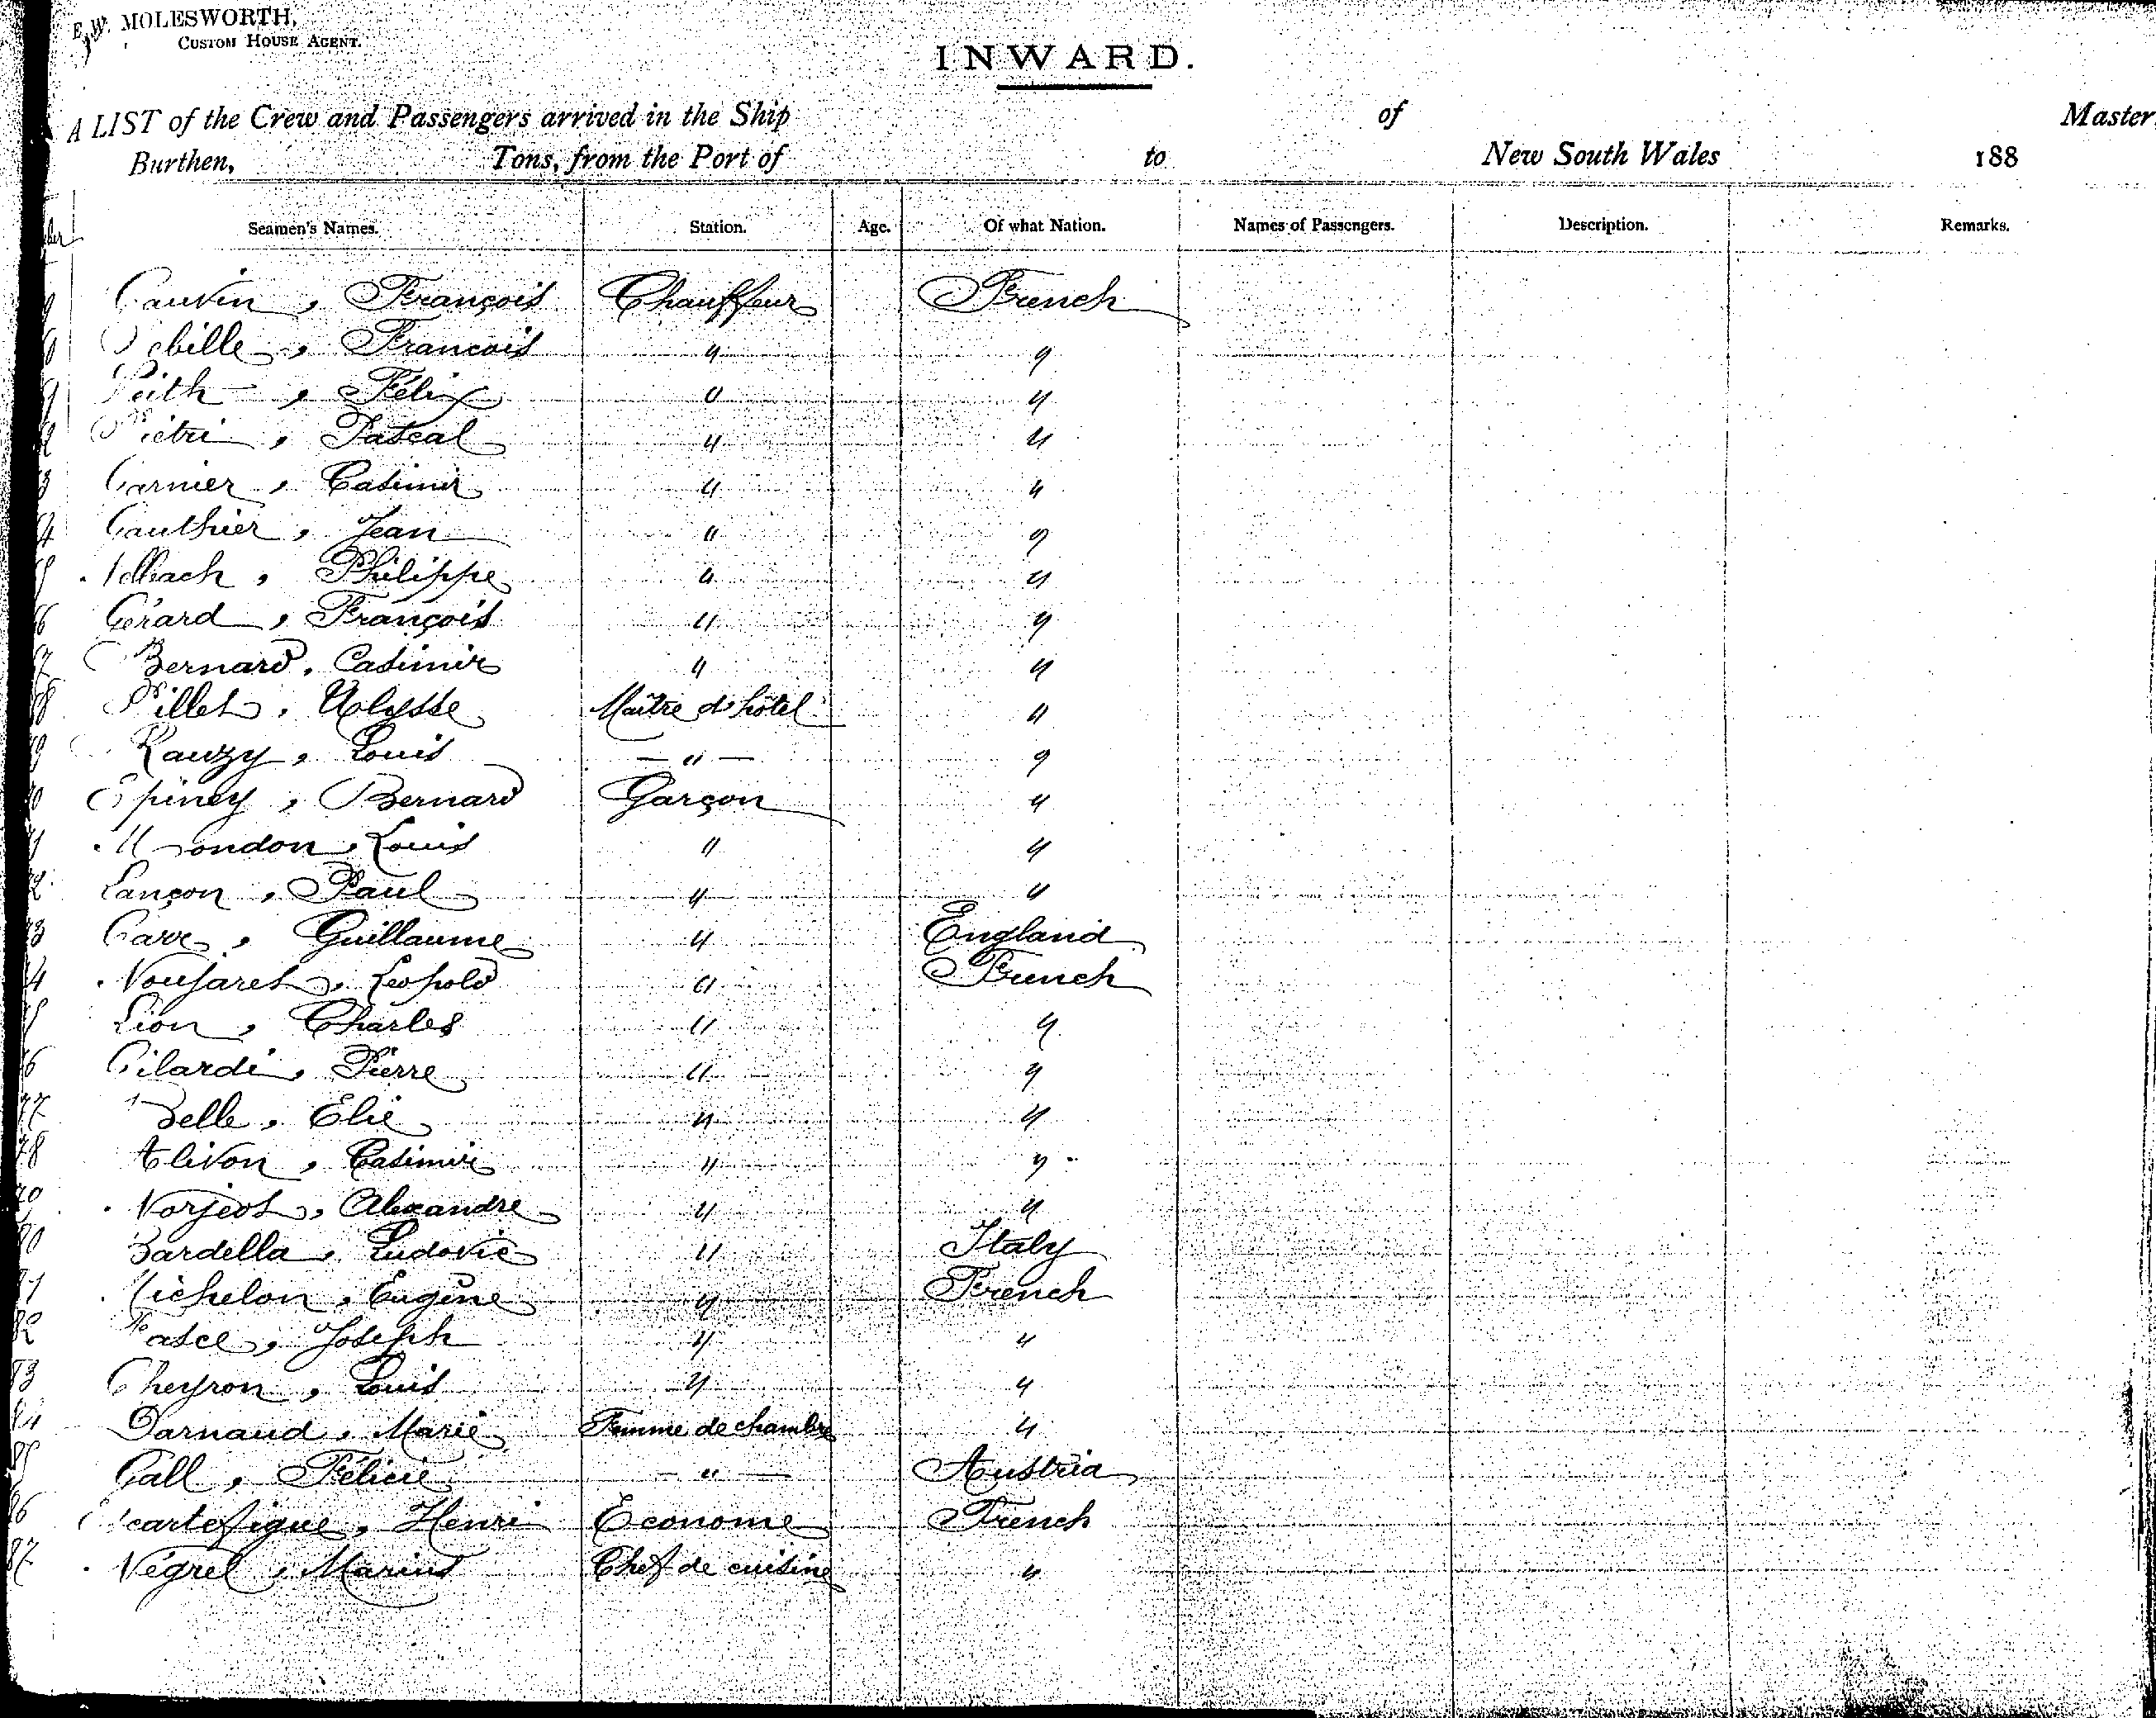 E. W. MOLESWORTH,
CUSTOM HOUSE AGENT.
INWARD.
A LIST of the Crew and Passengers arrived in the Ship of Master
Burthen, Tons, from the Port of to New South Wales 188
Seamen's Names. Station. Age. Of what Nation. Names of Passengers. Description. Remarks.
Gauvin, François Chauffeur French
François " "
Félix " "
Pietri, Pascal " "
Garnier, Casimir " "
Gauthier, Jean " "
Philippe " "
Gérard, François " "
Bernard, Casimir " "
Pillet, Ulysse Maître d'hôtel "
Rauzy, Louis — " — "
Epiney, Bernard Garçon "
Louis " "
Lançon, Paul " "
Carr, Guillaume " England
Leopold " French
Lion, Charles " "
Gilardi, Pierre " "
Belle, Elie " "
Alivon, Casimir " "
Alexandre " "
Bardella, Ludovic " Italy
Michelon, Eugène " French
Fasce, Joseph " "
Cheyron, Louis " "
Darnaud, Marie Femme de chambre "
Gall, Félicie — " — Austria
Escartefigue, Henri Econome French
77 78
82 83
86
87 Négrel, Marius Chef de cuisine "